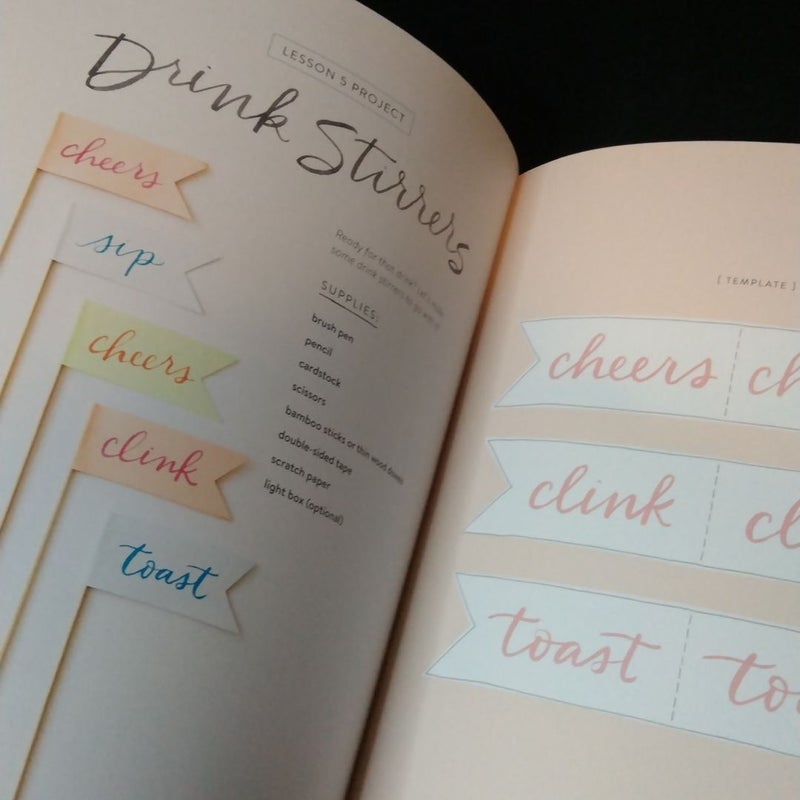 LESSON 5 PROJECT
Drink Stirrers
cheers
sip
cheers
clink
toast
Ready for that drink? Let's make
some drink stirrers to go with it!
SUPPLIES:
brush pen
pencil
cardstock
scissors
bamboo sticks or thin wood dowels
double-sided tape
scratch paper
light box (optional)
[ TEMPLATE ]
cheers ch
clink cl
toast to